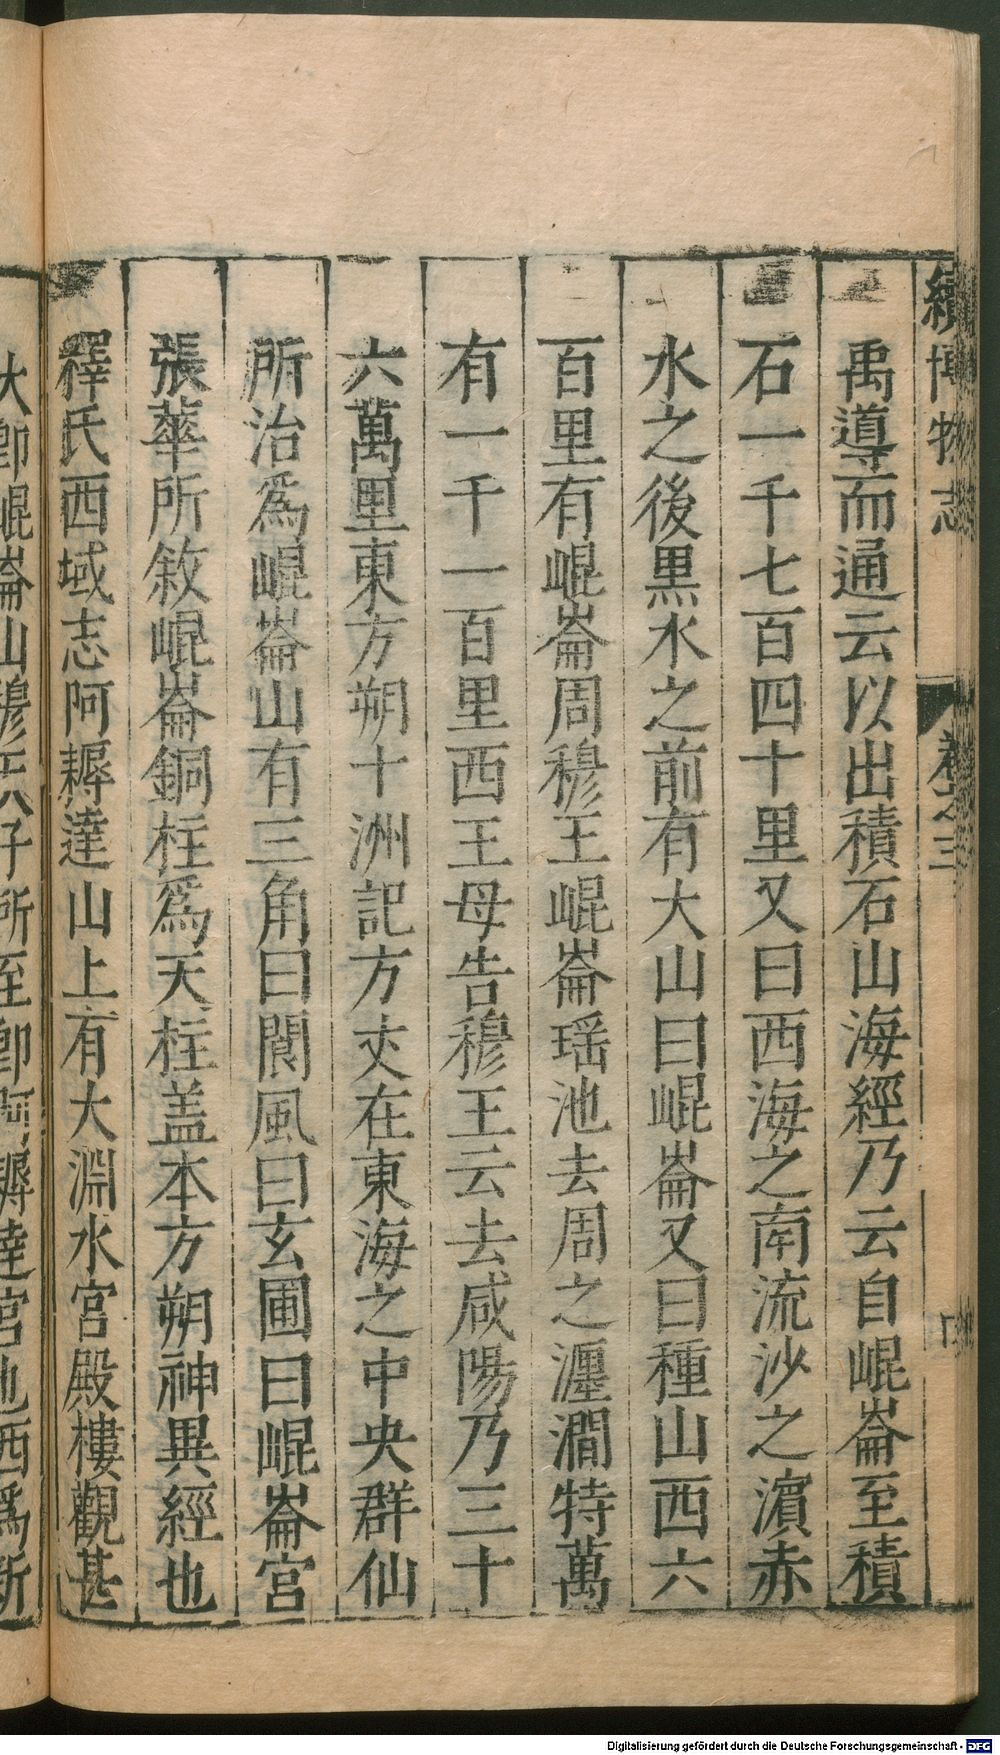 續博物志 卷之三
禹導而通云以出積石山海經乃云自崐崙至積
石一千七百四十里又曰西海之南流沙之濵赤
水之後黒水之前有大山曰崐崙又曰種山西六
百里有崐崙周穆王崐崙瑶池去周之瀍澗特萬
有一千一百里西王母告穆王云去咸陽乃三十
六萬里東方朔十洲記方丈在東海之中央群仙
所治爲崐崙山有三角曰閬風曰玄圃曰崐崙宮
張華所敘崐崙銅柱爲天柱盖本方朔神異經也
釋氏西域志阿耨達山上有大淵水宮殿樓觀甚
大卽崐崙山穆天子所至卽阿耨達宮也西爲新
Digitalisierung gefördert durch die Deutsche Forschungsgemeinschaft - DFG